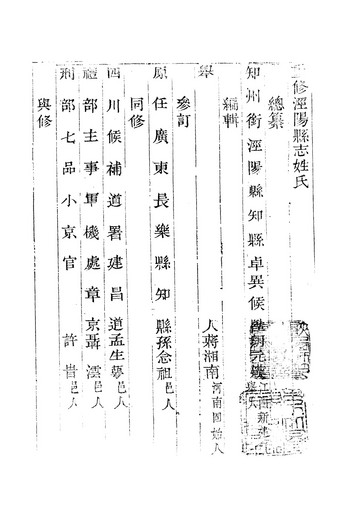 修涇陽縣志姓氏
總纂
知州銜涇陽縣知縣卓異候
編輯
舉人蔣湘南河南固始人
參訂
原任廣東長樂縣知縣孫念祖邑人
同修
四川候補道署建昌道孟生蕚邑人
禮部主事軍機處章京聶澐邑人
刑部七品小京官許
與修